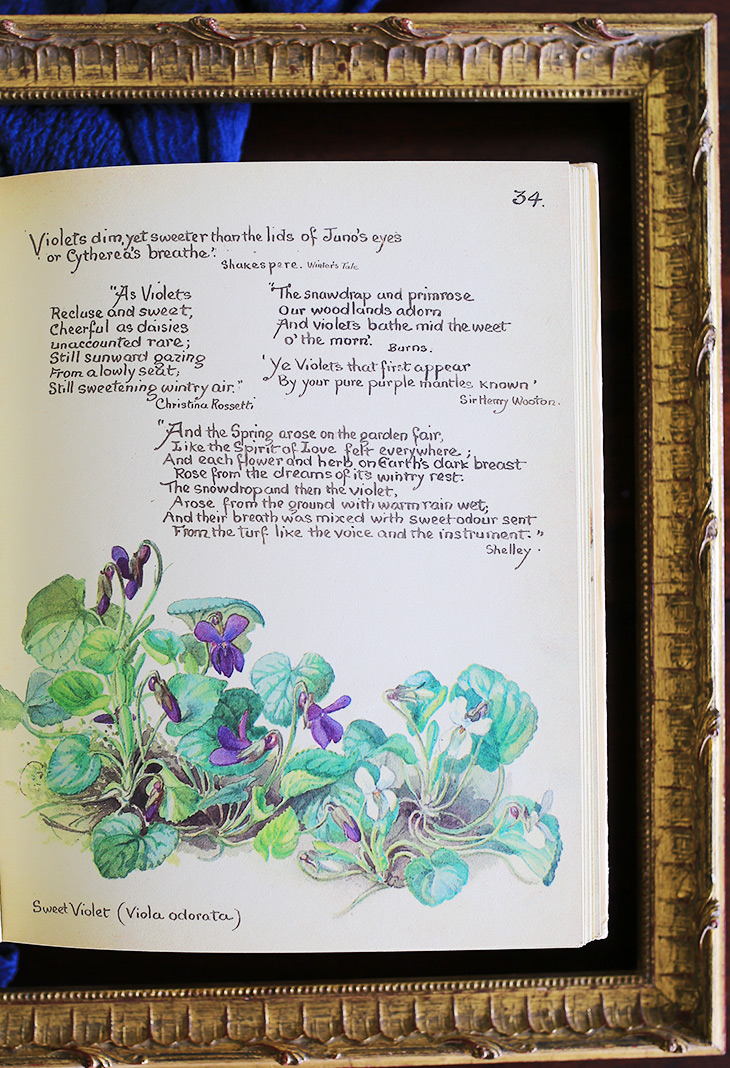 34.
Violets dim, yet sweeter than the lids of Juno's eyes
or Cytherea's breathe'.
Shakespere. Winter's Tale
"As Violets
Recluse and sweet,
Cheerful as daisies
unaccounted rare;
Still sunward gazing
From a lowly seat,
Still sweetening wintry air."
Christina Rossetti
"The snawdrap and primrose
Our woodlands adorn
And violets bathe mid the weet
o' the morn'.
Burns.
'Ye Violets that first appear
By your pure purple mantles known'
Sir Henry Wooton.
"And the Spring arose on the garden fair,
Like the Spirit of Love felt everywhere;
And each flower and herb on Earth's dark breast
Rose from the dreams of its wintry rest.
The snowdrop and then the violet,
Arose from the ground with warm rain wet,
And their breath was mixed with sweet odour sent
From the turf like the voice and the instrument."
Shelley.
Sweet Violet (Viola odorata)